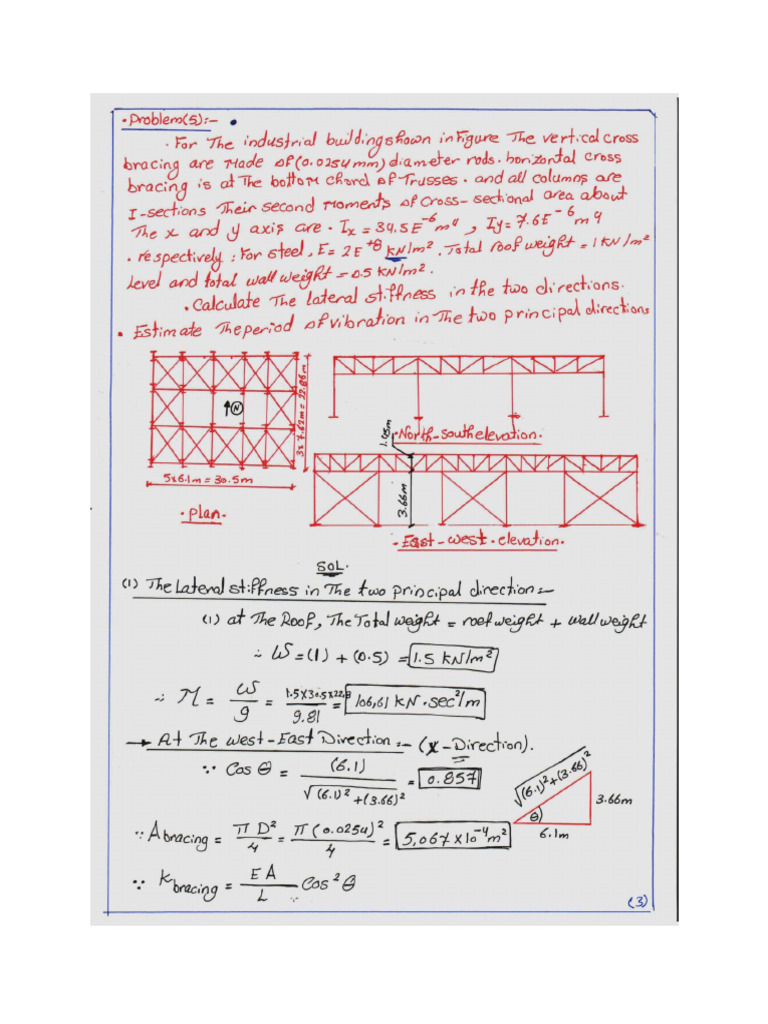 • Problem(5):- •
• For The industrial building shown in Figure The vertical cross
bracing are Made of (0.0254mm) diameter rods. horizontal cross
bracing is at The bottom chord of Trusses. and all columns are
I-sections Their second Moments of cross-sectional area about
The x and y axis are. Ix = 34.5E⁻⁶m⁴, Iy = 7.6E⁻⁶ m⁴
• respectively: For steel, E = 2E⁺⁸ KN/m². Total roof weight = 1 KN/m²
Level and total wall weight = 0.5 KN/m².
• Calculate The lateral stiffness in the two directions.
• Estimate The period of vibration in The two principal directions
3x7.62m = 22.86m
N
5x6.1m = 30.5m
• plan.
• North-south elevation.
1.05m
3.66m
• East-west. elevation.
SOL.
(1) The Lateral stiffness in The two principal direction:-
(1) at The Roof, The Total weight = roof weight + wall weight
∴ W = (1) + (0.5) = 1.5 KN/m²
∴ M = W/g = 1.5x30.5x22.8/9.81 = 106,61 KN.sec²/m
→ At The West-East Direction:- (x-Direction).
∵ Cos θ = (6.1)/√(6.1)²+(3.66)² = 0.857
√(6.1)²+(3.66)²
3.66m
θ
6.1m
∵ Abracing = π D²/4 = π(0.0254)²/4 = 5,067 x10⁻⁴ m²
∵ Kbracing = EA/L Cos² θ
(3)